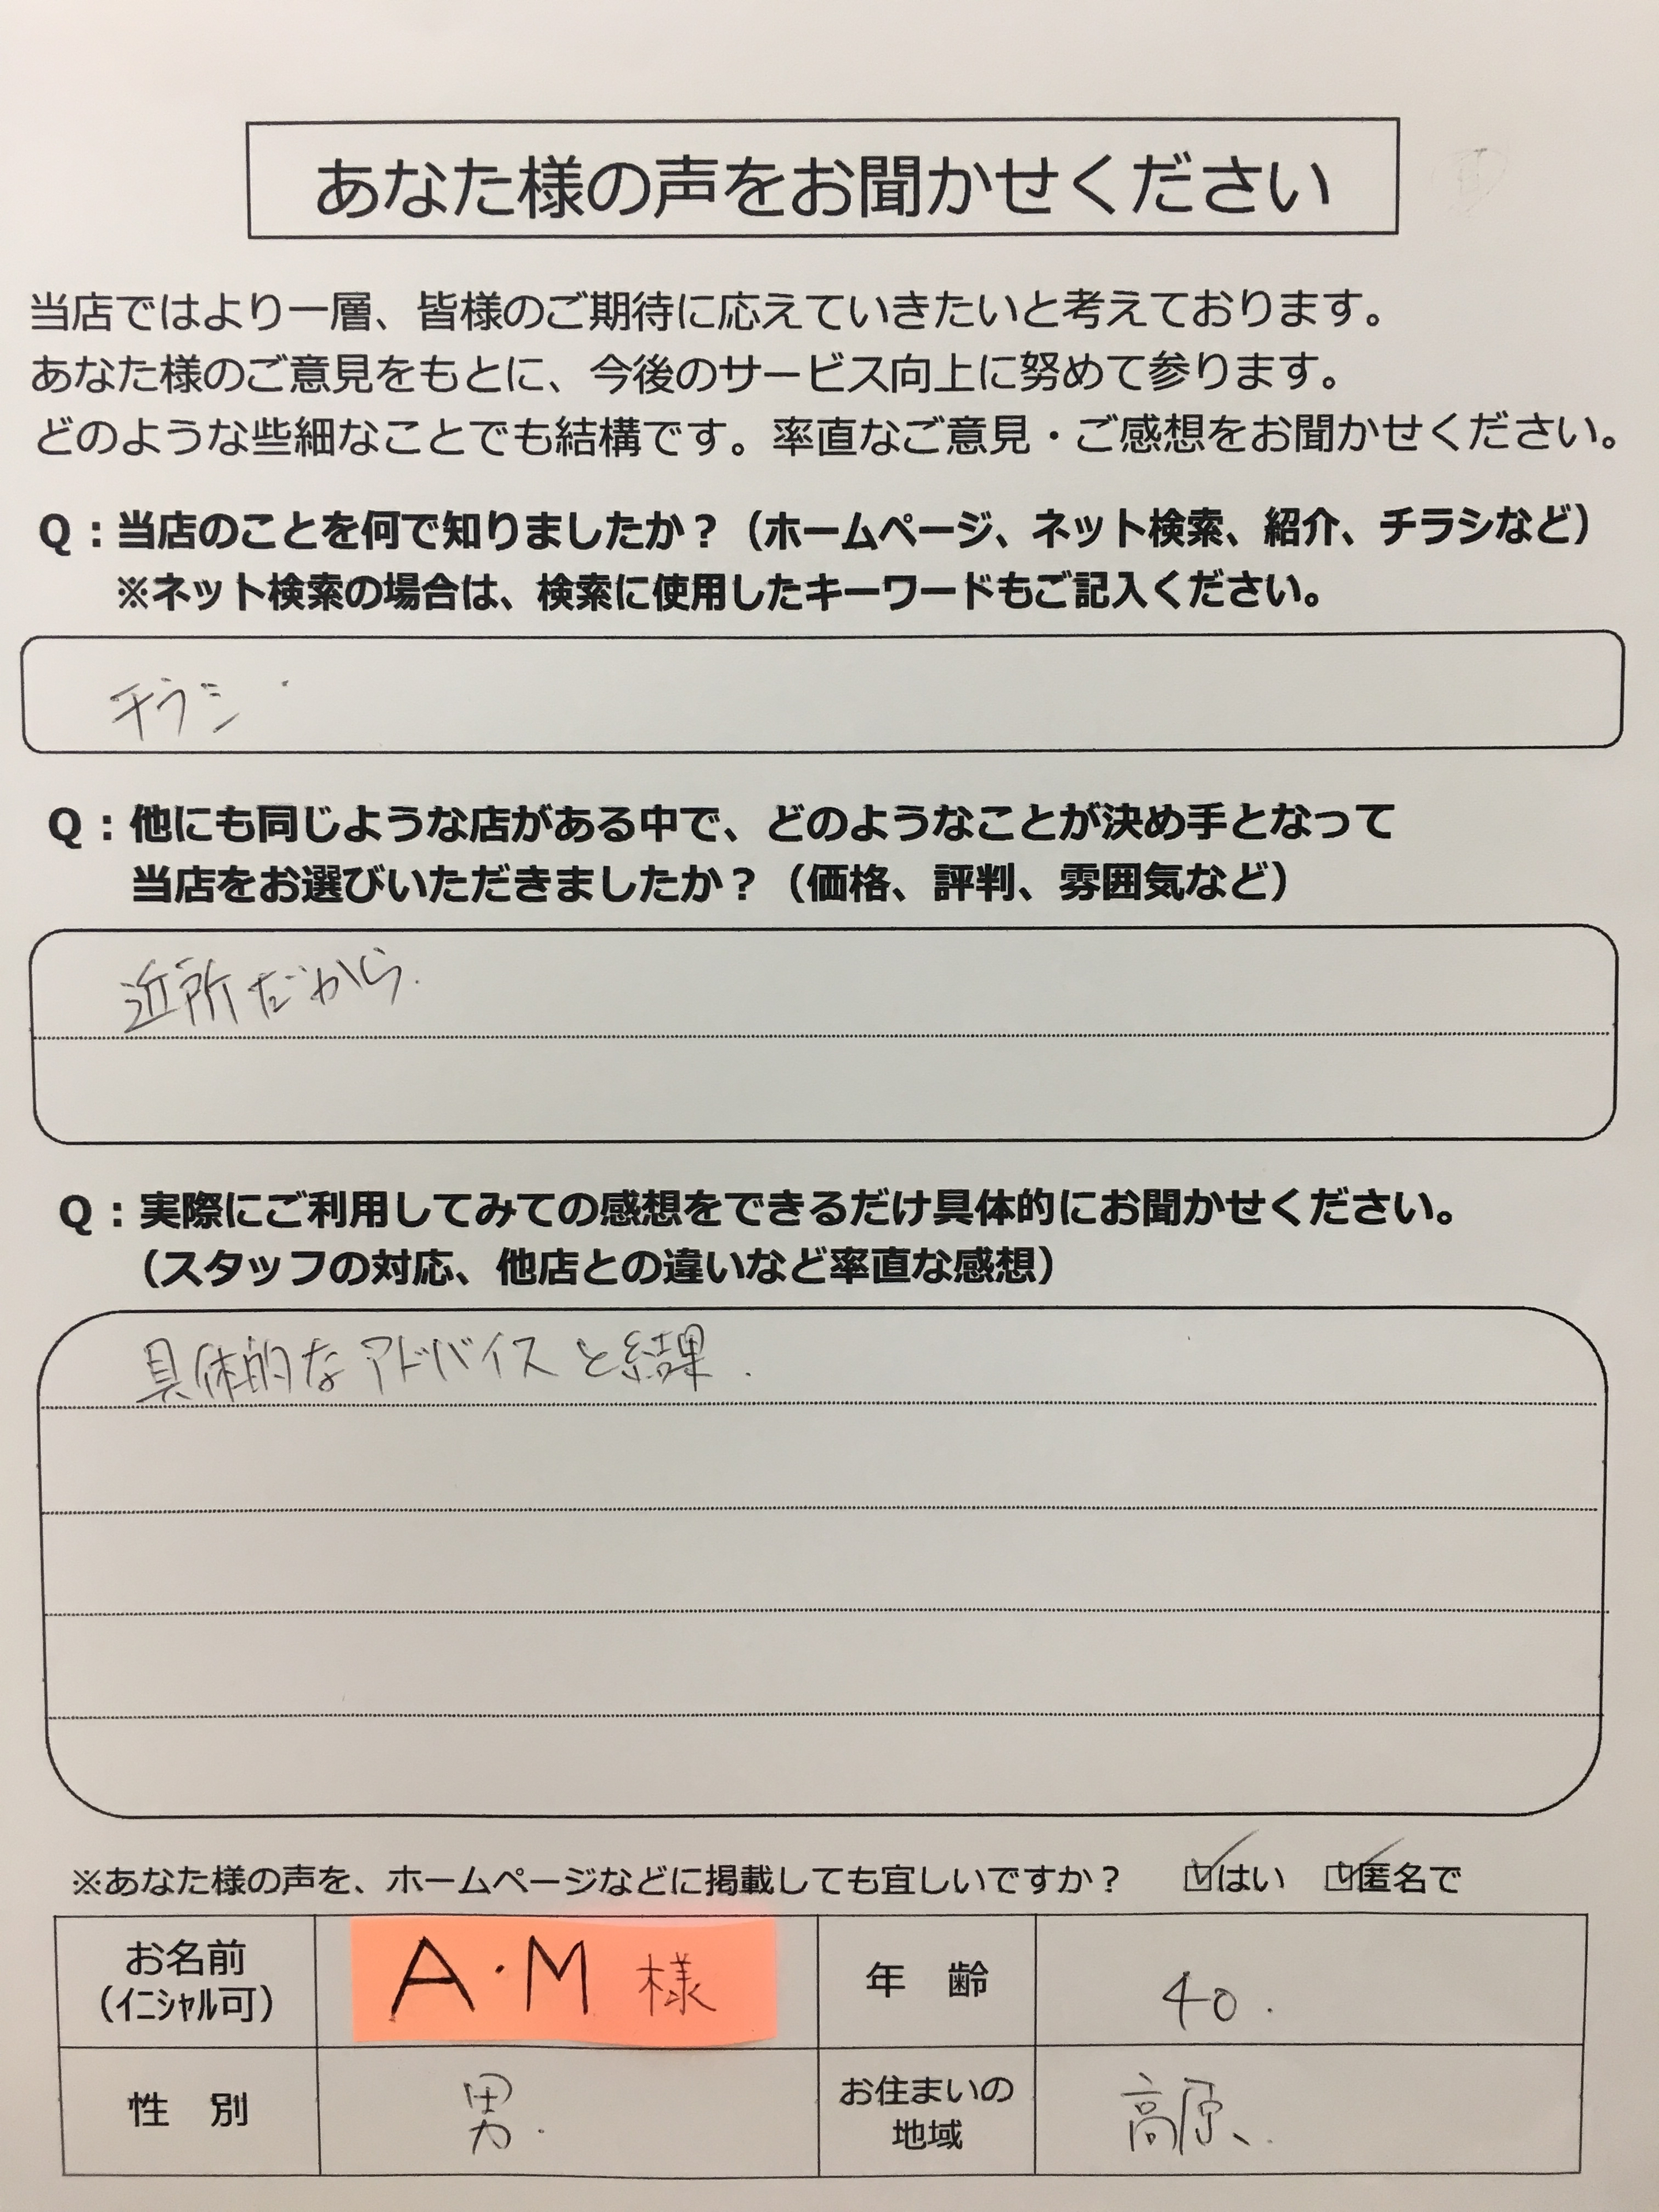 あなた様の声をお聞かせください
当店ではより一層、皆様のご期待に応えていきたいと考えております。
あなた様のご意見をもとに、今後のサービス向上に努めて参ります。
どのような些細なことでも結構です。率直なご意見・ご感想をお聞かせください。
Q：当店のことを何で知りましたか？（ホームページ、ネット検索、紹介、チラシなど）
※ネット検索の場合は、検索に使用したキーワードもご記入ください。
チラシ
Q：他にも同じような店がある中で、どのようなことが決め手となって
当店をお選びいただきましたか？（価格、評判、雰囲気など）
近所だから.
Q：実際にご利用してみての感想をできるだけ具体的にお聞かせください。
（スタッフの対応、他店との違いなど率直な感想）
具体的なアドバイスと結果.
※あなた様の声を、ホームページなどに掲載しても宜しいですか？ ☑はい ☑匿名で
お名前
（ｲﾆｼｬﾙ可）
A・M 様
年 齢
40.
性 別
男.
お住まいの
地域
高原、.